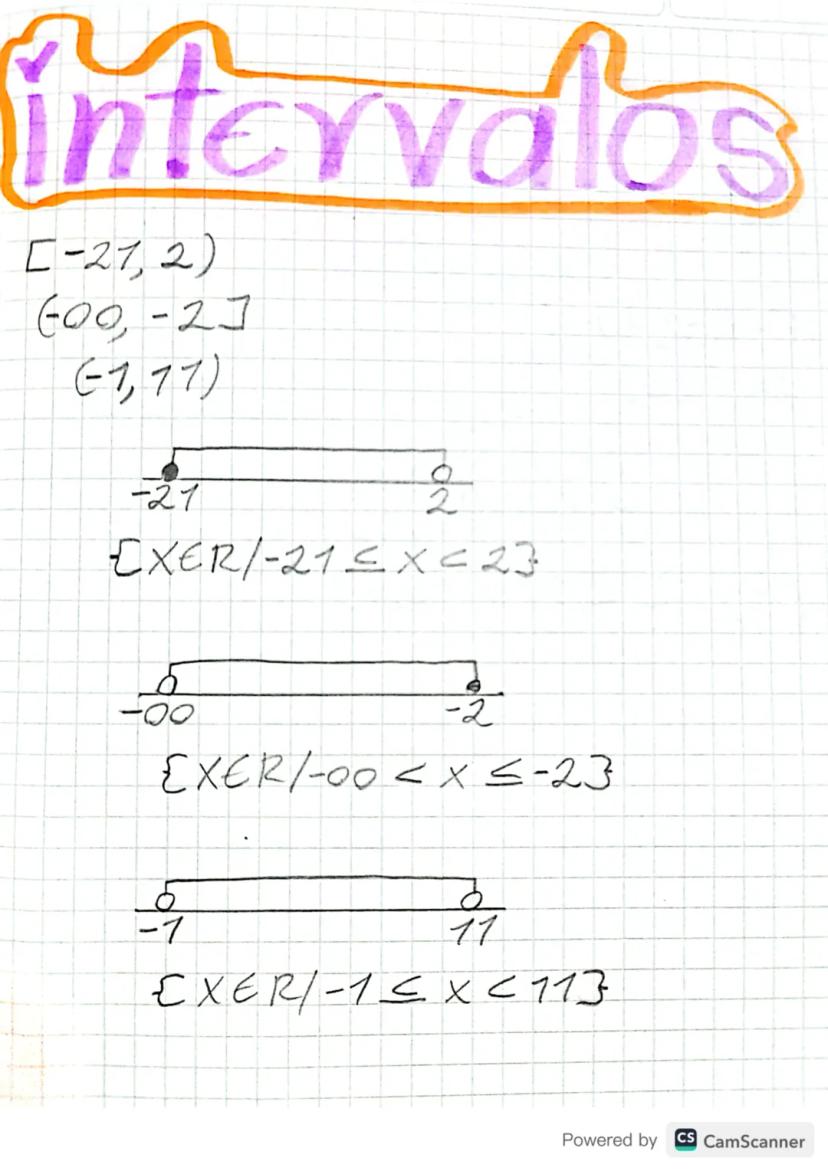 intervalos
[-21, 2)
(-00, -2]
(-1, 11)
-21 2
{XER/-21 ≤ x < 2}
-00 -2
{XER/-00 < x ≤ -2}
-1 11
{XER/-1 ≤ x < 11}
Powered by CS CamScanner